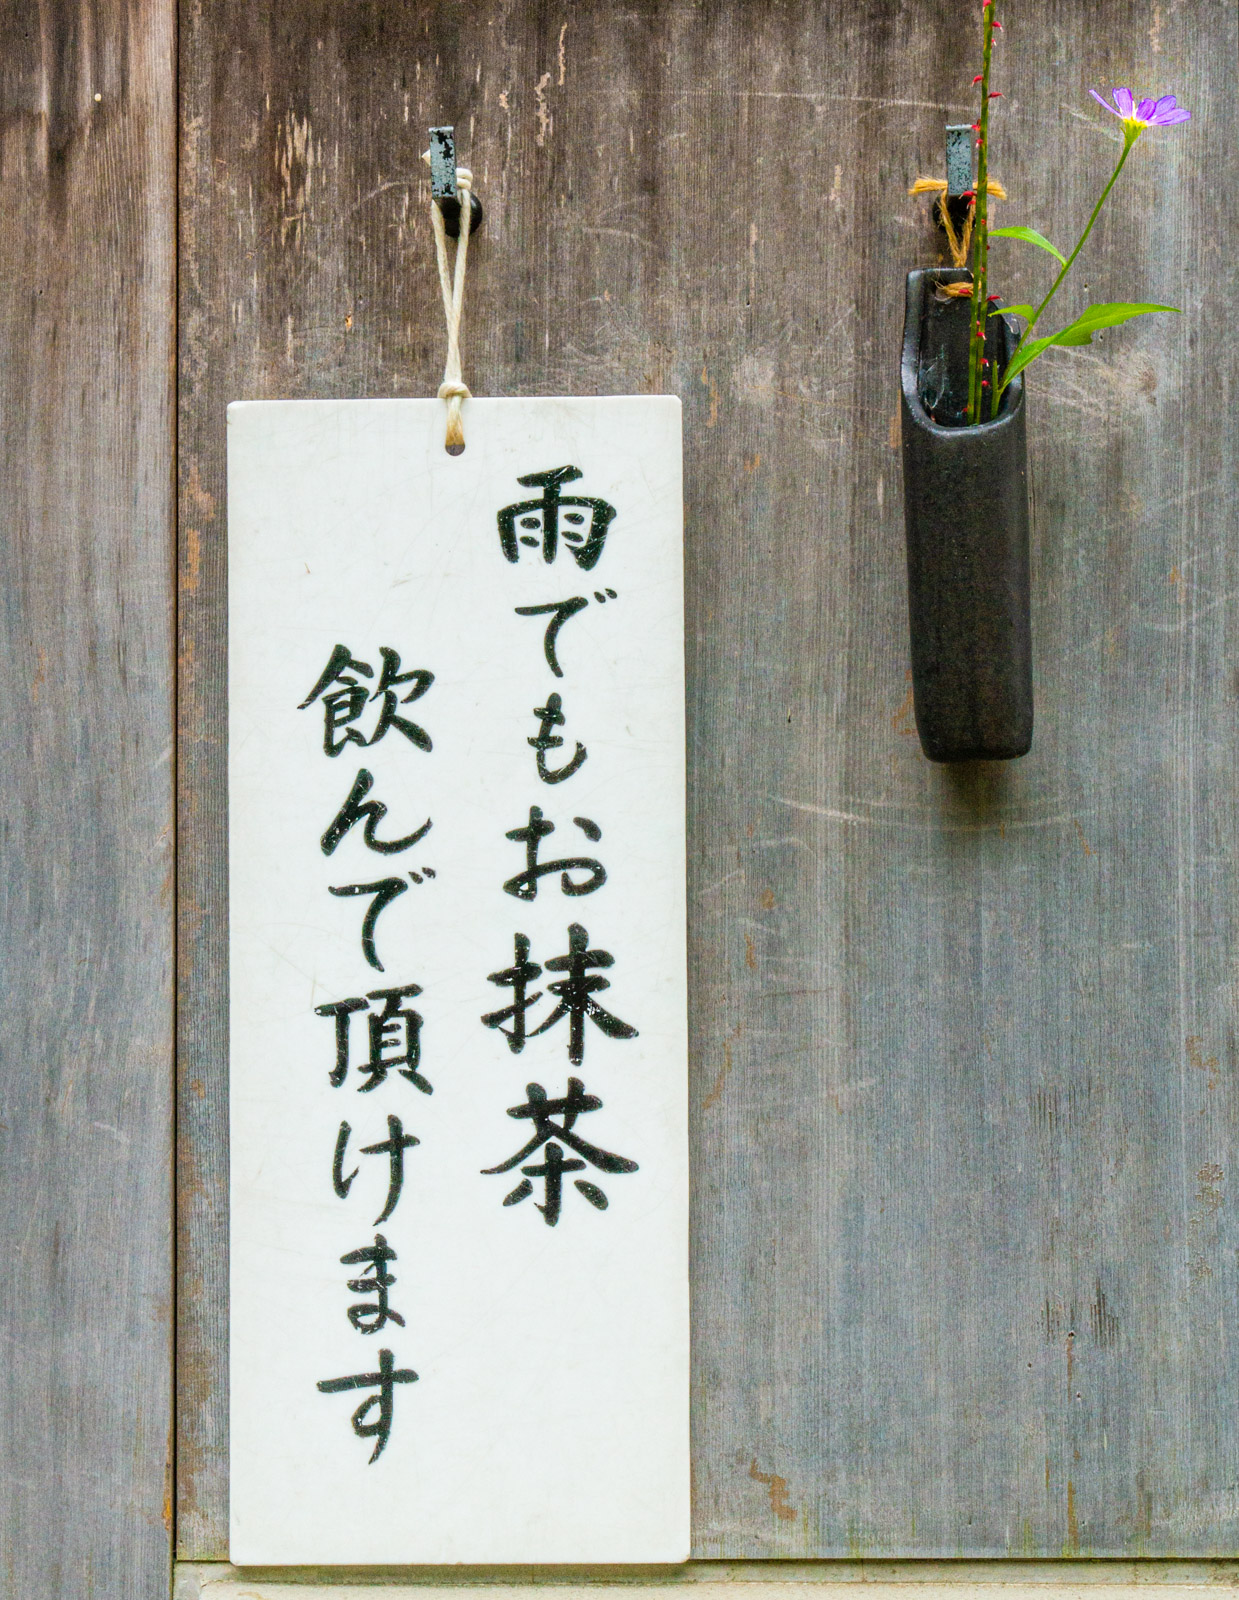 雨でもお抹茶
飲んで頂けます